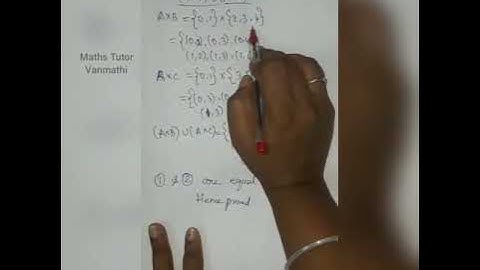 Maths Tutor
Vanmathi
A×B = {0,1} × {2,3,4}
= {(0,2), (0,3), (0,
(1,2), (1,3), (1,
A×C = {0,1} × {3,
= {(0,3), (0,
(1,3)
(A×B) ∪ (A×C) = {
① & ② are equal
Hence proved